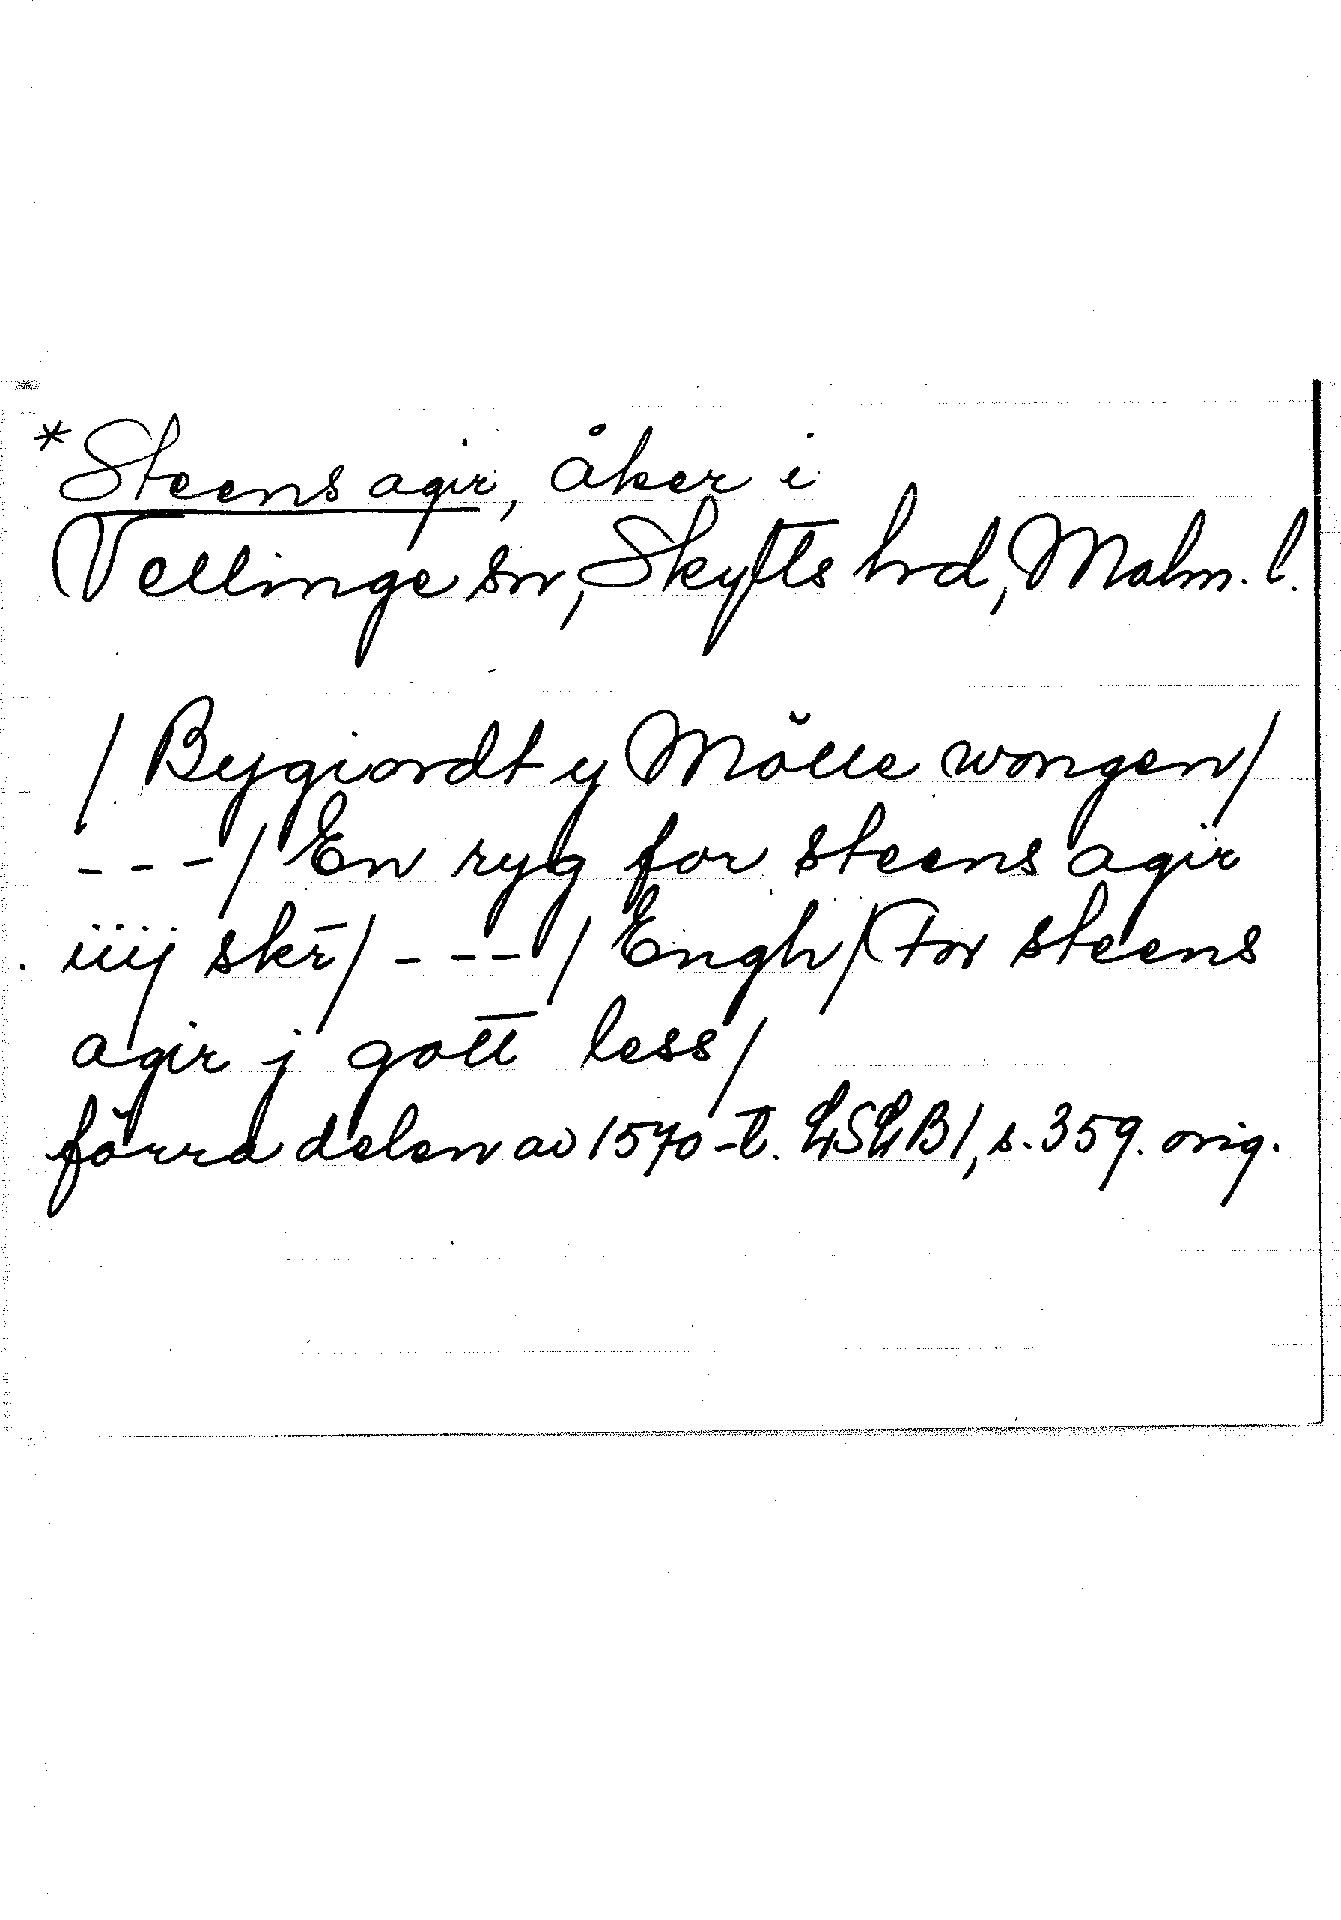 *Steens agir, åker i
Vellinge sn, Skytts hrd, Malm. l.
/ Bygiordt y Mölle wongen/
---/ En ryg for steens agir
iiij skr̄/ ---/ Engh/ For steens
agir j gott less/
förra delen av 1570-t. LSLB1, s. 359. orig.